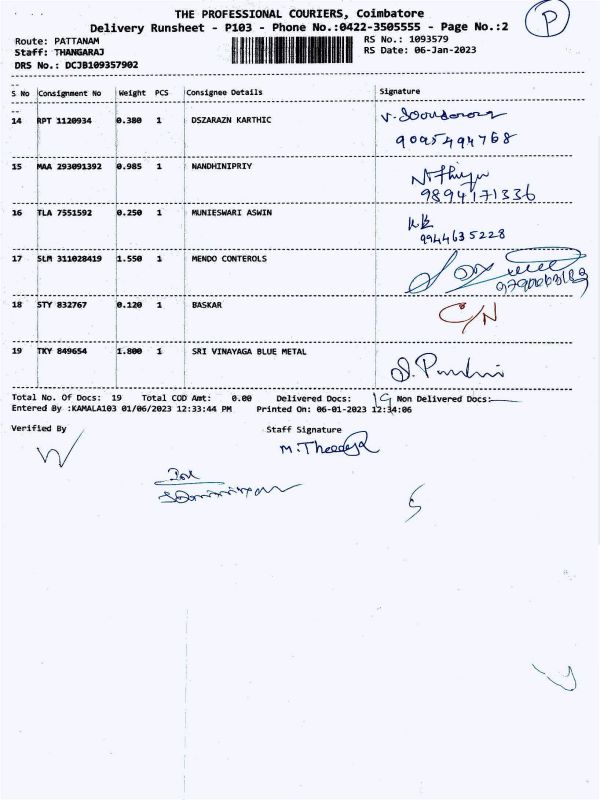 THE PROFESSIONAL COURIERS, Coimbatore
Delivery Runsheet - P103 - Phone No.:0422-3505555 - Page No.:2
P
Route: PATTANAM
RS No.: 1093579
Staff: THANGARAJ
RS Date: 06-Jan-2023
DRS No.: DCJB109357902
S No Consignment No Weight PCS Consignee Details Signature
14 RPT 1120934 0.380 1 DSZARAZN KARTHIC
9095494768
15 MAA 293091392 0.985 1 NANDHINIPRIY
9894171336
16 TLA 7551592 0.250 1 MUNIESWARI ASWIN
9944635228
17 SLM 311028419 1.550 1 MENDO CONTEROLS
18 STY 832767 0.120 1 BASKAR C/N
19 TKY 849654 1.800 1 SRI VINAYAGA BLUE METAL
Total No. Of Docs: 19 Total COD Amt: 0.00 Delivered Docs: 19 Non Delivered Docs:
Entered By :KAMALA103 01/06/2023 12:33:44 PM Printed On: 06-01-2023 12:34:06
Verified By Staff Signature